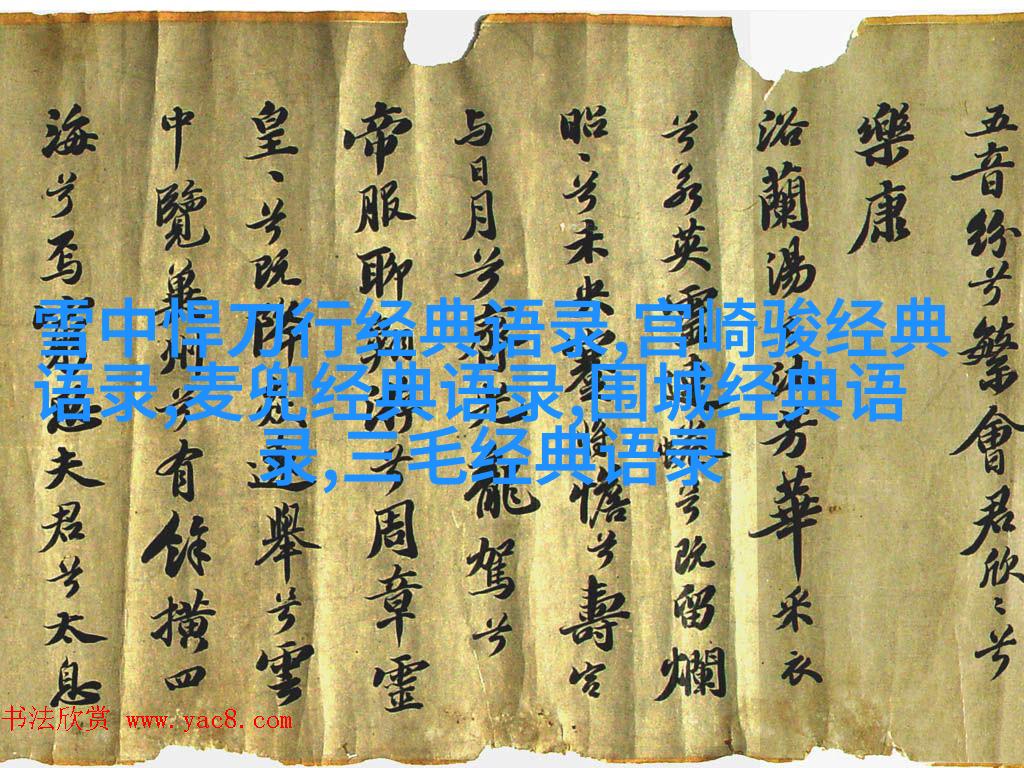 五音紛兮繁會君欣〻兮
樂康
浴蘭湯兮沐芳華采衣
兮若英靈兮既留爛
昭〻兮未央蹇將憺兮壽宮
与日月兮齊光龍駕兮
帝服聊翱游兮周章靈
皇〻兮既降遠舉兮雲
中覽冀州兮有餘橫四
海兮焉窮思夫君兮太息
雪中悍刀行经典语录,宫崎骏经典
语录,麦兜经典语录,围城经典语
录,三毛经典语录
书法欣赏 www.yac8.com